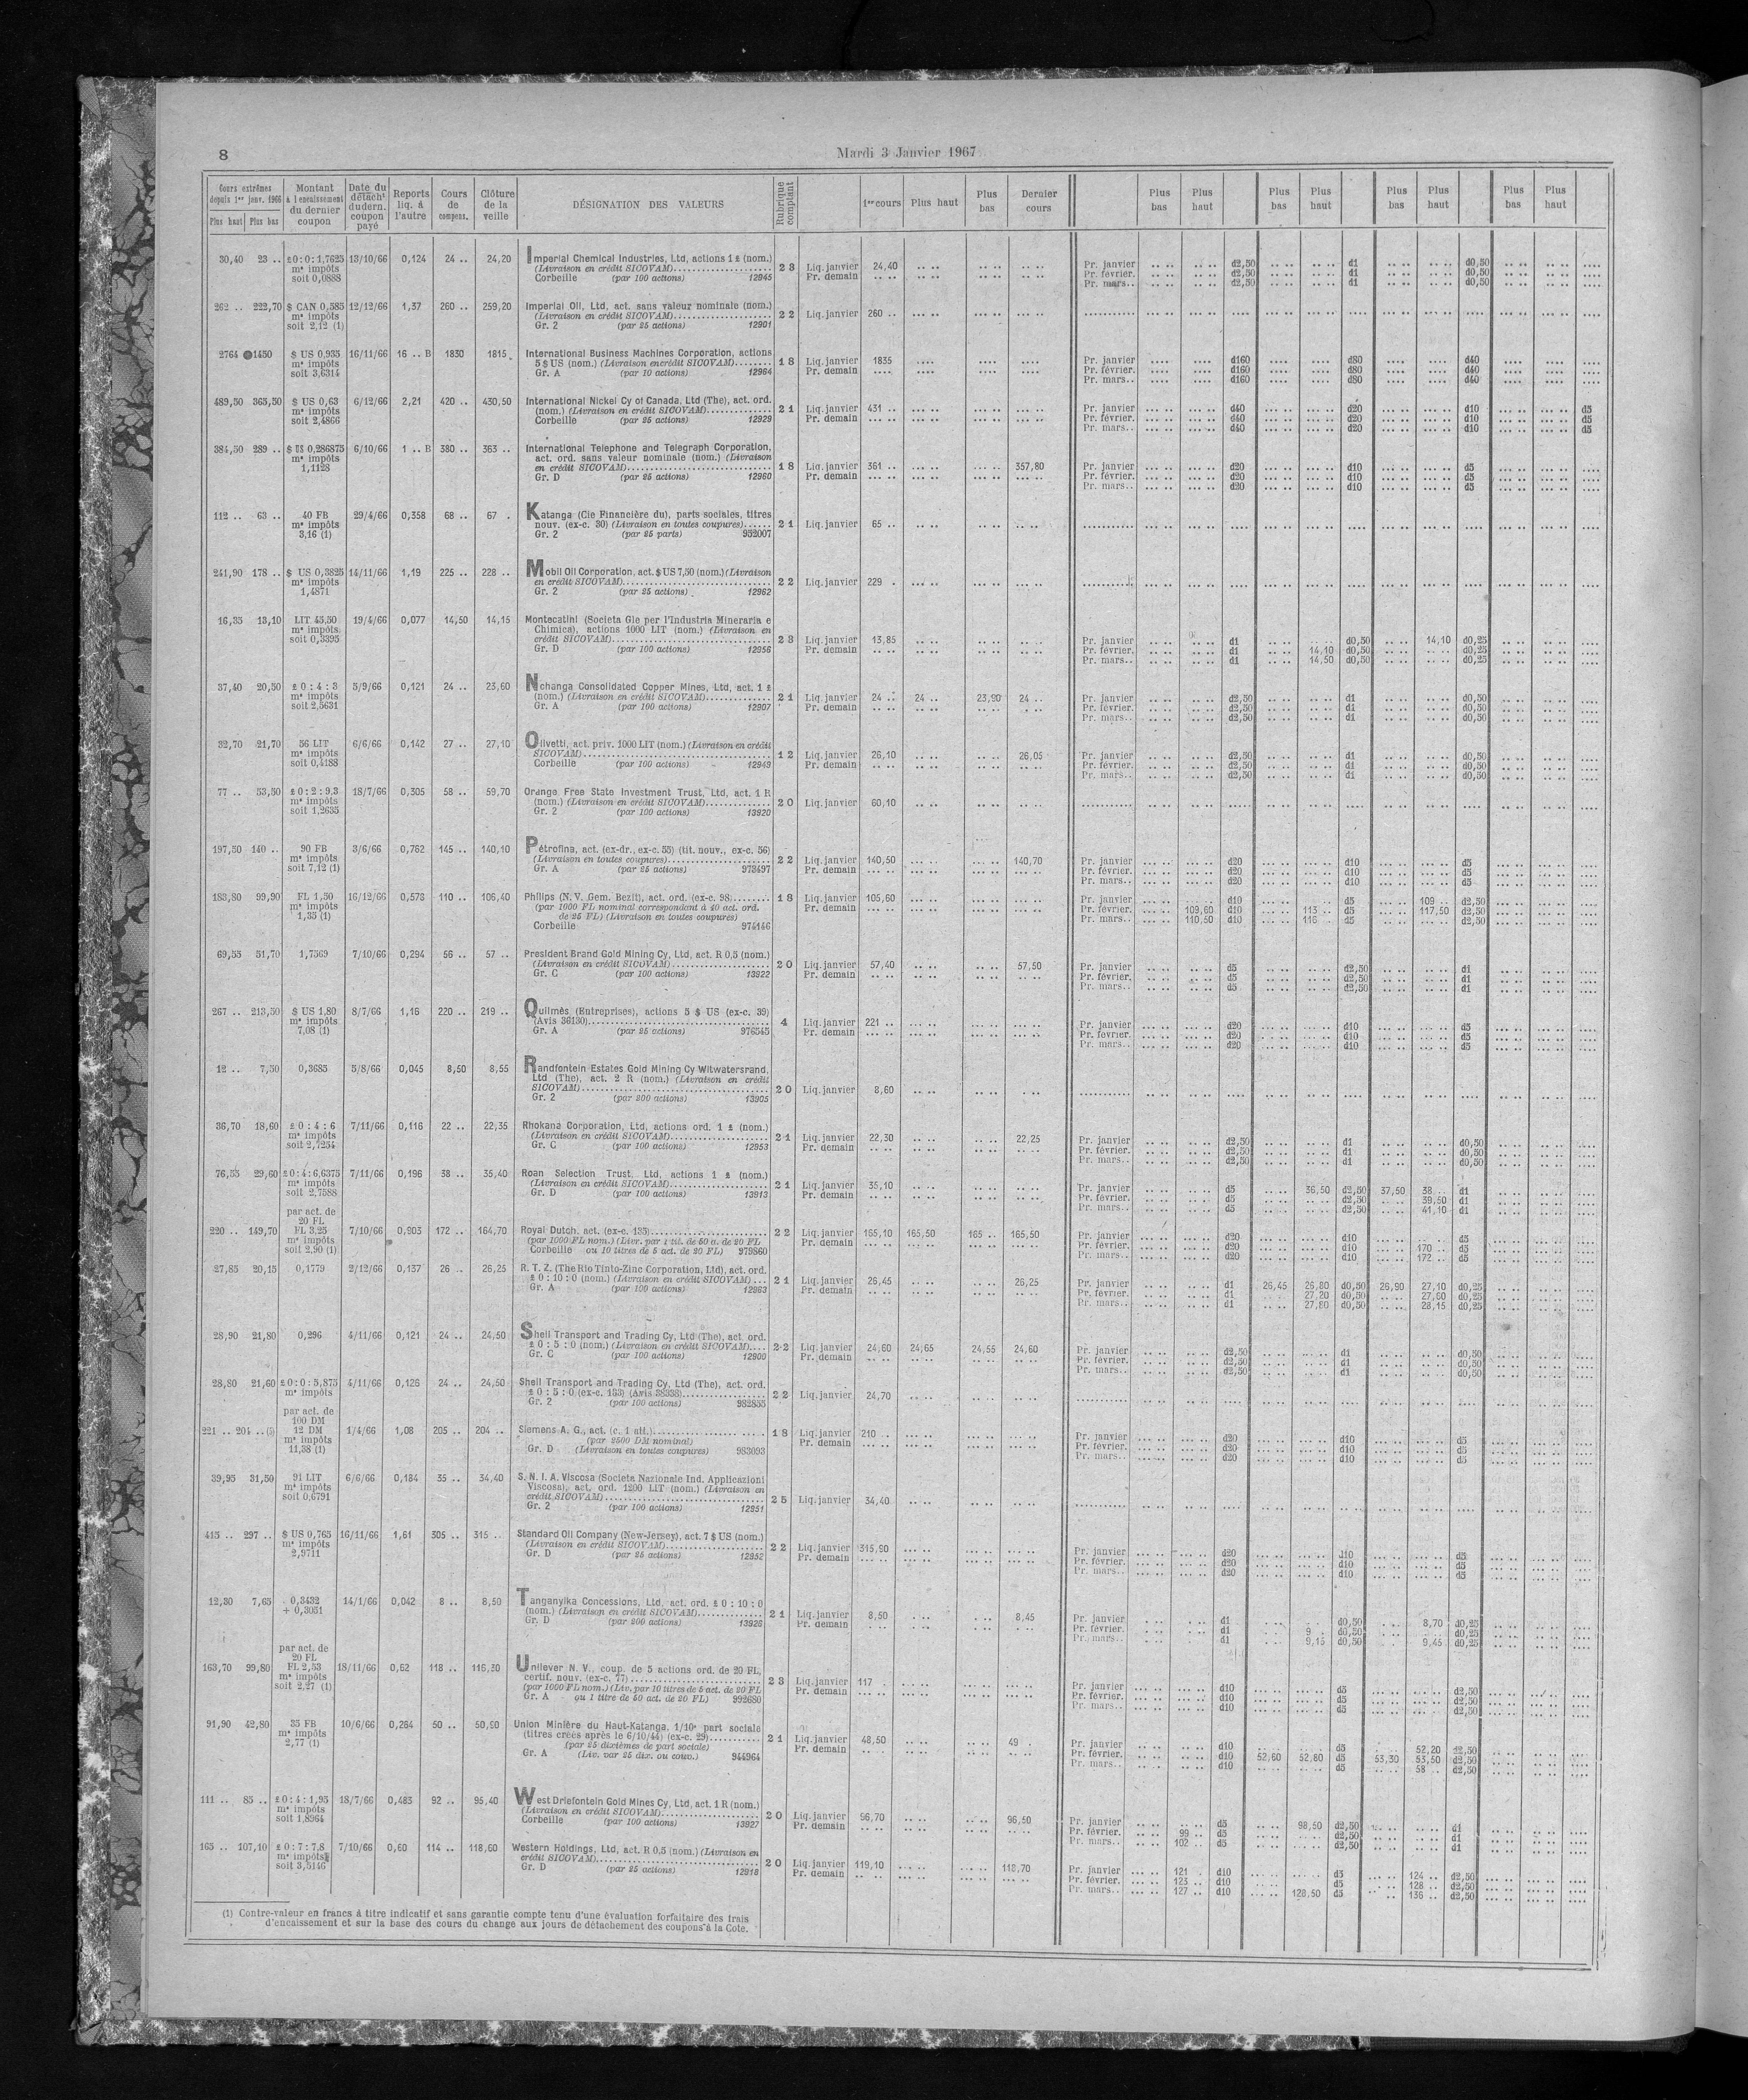 8
Mardi 3 Janvier 1967
Cours extrêmes depuis 1er janv. 1966 Plus haut Plus bas
Montant à l'encaissement du dernier coupon
Date du détacht du dern. coupon payé
Reports liq. à l'autre
Cours de compens.
Clôture de la veille
DÉSIGNATION DES VALEURS
Rubrique comptant
1er cours Plus haut Plus bas Dernier cours
Plus bas Plus haut Plus bas Plus haut Plus bas Plus haut Plus bas Plus haut
30,40 23 .. £0:0:1,7625 13/10/66 0,124 24 .. 24,20 Imperial Chemical Industries, Ltd, actions 1 £ (nom.)
me impôts (Livraison en crédit SICOVAM) 23 Liq. janvier 24,40 Pr. janvier d2,50 d1 d0,50
soit 0,0888 Corbeille (par 100 actions) 12945 Pr. demain Pr. février. d2,50 d1 d0,50
Pr. mars.. d2,50 d1 d0,50
262 .. 222,70 $ CAN 0,585 12/12/66 1,37 260 .. 259,20 Imperial Oil, Ltd, act. sans valeur nominale (nom.)
me impôts (Livraison en crédit SICOVAM) 22 Liq. janvier 260 ..
soit 2,12 (1) Gr. 2 (par 25 actions) 12901
2764 1450 $ US 0,935 16/11/66 16 .. B 1830 1815 International Business Machines Corporation, actions
me impôts 5 $ US (nom.) (Livraison en crédit SICOVAM) 18 Liq. janvier 1835 Pr. janvier d160 d80 d40
soit 3,6314 Gr. A (par 10 actions) 12964 Pr. demain Pr. février. d160 d80 d40
Pr. mars.. d160 d80 d40
489,50 363,50 $ US 0,63 6/12/66 2,21 420 .. 430,50 International Nickel Cy of Canada, Ltd (The), act. ord.
me impôts (nom.) (Livraison en crédit SICOVAM) 21 Liq. janvier 431 .. Pr. janvier d40 d20 d10 d5
soit 2,4866 Corbeille (par 25 actions) 12929 Pr. demain Pr. février. d40 d20 d10 d5
Pr. mars.. d40 d20 d10 d5
384,50 289 .. $ US 0,286875 6/10/66 1 .. B 380 .. 363 .. International Telephone and Telegraph Corporation,
me impôts act. ord. sans valeur nominale (nom.) (Livraison
1,1128 en crédit SICOVAM) 18 Liq. janvier 361 .. 357,80 Pr. janvier d20 d10 d5
Gr. D (par 25 actions) 12960 Pr. demain Pr. février. d20 d10 d5
Pr. mars.. d20 d10 d5
112 .. 63 .. 40 FB 29/4/66 0,358 68 .. 67 . Katanga (Cie Financière du), parts sociales, titres
me impôts nouv. (ex-c. 30) (Livraison en toutes coupures) 21 Liq. janvier 65 ..
3,16 (1) Gr. 2 (par 25 parts) 952007
241,90 178 .. $ US 0,3825 14/11/66 1,19 225 .. 228 .. Mobil Oil Corporation, act. $ US 7,50 (nom.) (Livraison
me impôts en crédit SICOVAM) 22 Liq. janvier 229 .
1,4871 Gr. 2 (par 25 actions) 12962
16,35 13,10 LIT. 45,50 19/4/66 0,077 14,50 14,15 Montecatini (Societa Gle per l'Industria Mineraria e
me impôts Chimica), actions 1000 LIT (nom.) (Livraison en
soit 0,3395 crédit SICOVAM) 23 Liq. janvier 13,85 Pr. janvier d1 d0,50 14,10 d0,25
Gr. D (par 100 actions) 12956 Pr. demain Pr. février. d1 14,10 d0,50 d0,25
Pr. mars.. d1 14,50 d0,50 d0,25
37,40 20,50 £ 0 : 4 : 3 5/9/66 0,121 24 .. 23,60 Nchanga Consolidated Copper Mines, Ltd, act. 1 £
me impôts (nom.) (Livraison en crédit SICOVAM) 21 Liq. janvier 24 .. 24 .. 23,90 24 .. Pr. janvier d2,50 d1 d0,50
soit 2,5631 Gr. A (par 100 actions) 12907 Pr. demain Pr. février. d2,50 d1 d0,50
Pr. mars.. d2,50 d1 d0,50
32,70 21,70 56 LIT 6/6/66 0,142 27 .. 27,10 Olivetti, act. priv. 1000 LIT (nom.) (Livraison en crédit
me impôts SICOVAM) 12 Liq. janvier 26,10 26,05 Pr. janvier d2,50 d1 d0,50
soit 0,4188 Corbeille (par 100 actions) 12949 Pr. demain Pr. février. d2,50 d1 d0,50
Pr. mars.. d2,50 d1 d0,50
77 .. 53,50 £ 0 : 2 : 9,3 18/7/66 0,305 58 .. 59,70 Orange Free State Investment Trust, Ltd, act. 1 R
me impôts (nom.) (Livraison en crédit SICOVAM) 20 Liq. janvier 60,10
soit 1,2635 Gr. 2 (par 100 actions) 13920
197,50 140 .. 90 FB 3/6/66 0,762 145 .. 140,10 Pétrofina, act. (ex-dr., ex-c. 55) (tit. nouv., ex-c. 56)
me impôts (Livraison en toutes coupures) 22 Liq. janvier 140,50 140,70 Pr. janvier d20 d10 d5
soit 7,12 (1) Gr. A (par 25 actions) 973497 Pr. demain Pr. février. d20 d10 d5
Pr. mars.. d20 d10 d5
183,80 99,90 FL 1,50 16/12/66 0,573 110 .. 106,40 Philips (N. V. Gem. Bezit), act. ord. (ex-c. 98) 18 Liq. janvier 105,60 Pr. janvier d10 d5 109 .. d2,50
me impôts (par 1000 FL nominal correspondant à 40 act. ord. Pr. demain Pr. février. 109,60 d10 113 .. d5 117,50 d2,50
1,35 (1) de 25 FL) (Livraison en toutes coupures) Pr. mars.. 110,50 d10 116 .. d5 d2,50
Corbeille 974146
69,55 51,70 1,7569 7/10/66 0,294 56 .. 57 .. President Brand Gold Mining Cy, Ltd, act. R 0,5 (nom.)
(Livraison en crédit SICOVAM) 20 Liq. janvier 57,40 57,50 Pr. janvier d5 d2,50 d1
Gr. C (par 100 actions) 13922 Pr. demain Pr. février. d5 d2,50 d1
Pr. mars.. d5 d2,50 d1
267 .. 213,50 $ US 1,80 8/7/66 1,16 220 .. 219 .. Quilmès (Entreprises), actions 5 $ US (ex-c. 39)
me impôts (Avis 36130) 4 Liq. janvier 221 .. Pr. janvier d20 d10 d5
7,08 (1) Gr. A (par 25 actions) 976545 Pr. demain Pr. février. d20 d10 d5
Pr. mars.. d20 d10 d5
12 .. 7,50 0,3685 5/8/66 0,045 8,50 8,55 Randfontein Estates Gold Mining Cy Witwatersrand,
Ltd (The), act. 2 R (nom.) (Livraison en crédit
SICOVAM) 20 Liq. janvier 8,60
Gr. 2 (par 200 actions) 13905
36,70 18,60 £ 0 : 4 : 6 7/11/66 0,116 22 .. 22,35 Rhokana Corporation, Ltd, actions ord. 1 £ (nom.)
me impôts (Livraison en crédit SICOVAM) 21 Liq. janvier 22,30 22,25 Pr. janvier d2,50 d1 d0,50
soit 2,7254 Gr. C (par 100 actions) 12953 Pr. demain Pr. février. d2,50 d1 d0,50
Pr. mars.. d2,50 d1 d0,50
76,55 29,60 £0:4:6,6375 7/11/66 0,196 38 .. 35,40 Roan Selection Trust, Ltd, actions 1 £ (nom.)
me impôts (Livraison en crédit SICOVAM) 21 Liq. janvier 35,10 Pr. janvier d5 36,50 d2,50 37,50 38 .. d1
soit 2,7588 Gr. D (par 100 actions) 13913 Pr. demain Pr. février. d5 d2,50 39,50 d1
Pr. mars.. d5 d2,50 41,10 d1
par act. de
20 FL
220 .. 149,70 FL 3,25 7/10/66 0,903 172 .. 164,70 Royal Dutch, act. (ex-c. 135) 22 Liq. janvier 165,10 165,50 165 .. 165,50 Pr. janvier d20 d10 d5
me impôts (par 1000 FL nom.) (Livr. par 1 tit. de 50 a. de 20 FL Pr. demain Pr. février. d20 d10 170 .. d5
soit 2,90 (1) Corbeille ou 10 titres de 5 act. de 20 FL) 979860 Pr. mars.. d20 d10 172 .. d5
27,85 20,15 0,1779 2/12/66 0,137 26 .. 26,25 R. T. Z. (The Rio Tinto-Zinc Corporation, Ltd), act. ord.
£ 0 : 10 : 0 (nom.) (Livraison en crédit SICOVAM) 21 Liq. janvier 26,45 26,25 Pr. janvier d1 26,45 26,80 d0,50 26,90 27,10 d0,25
Gr. A (par 100 actions) 12963 Pr. demain Pr. février. d1 27,20 d0,50 27,60 d0,25
Pr. mars.. d1 27,80 d0,50 28,15 d0,25
28,90 21,80 0,296 4/11/66 0,121 24 .. 24,50 Shell Transport and Trading Cy, Ltd (The), act. ord.
£ 0 : 5 : 0 (nom.) (Livraison en crédit SICOVAM) 22 Liq. janvier 24,60 24,65 24,55 24,60 Pr. janvier d2,50 d1 d0,50
Gr. C (par 100 actions) 12900 Pr. demain Pr. février. d2,50 d1 d0,50
Pr. mars.. d2,50 d1 d0,50
28,80 21,60 £0:0:5,875 4/11/66 0,126 24 .. 24,50 Shell Transport and Trading Cy, Ltd (The), act. ord.
me impôts £ 0 : 5 : 0 (ex-c. 133) (Avis 38338) 22 Liq. janvier 24,70
Gr. 2 (par 100 actions) 982855
par act. de
100 DM
221 .. 204 .. 12 DM 1/4/66 1,08 205 .. 204 .. Siemens A. G., act. (c. 1 att.) 18 Liq. janvier 210 .. Pr. janvier d20 d10 d5
me impôts (par 2500 DM nominal) Pr. demain Pr. février. d20 d10 d5
11,38 (1) Gr. D (Livraison en toutes coupures) 983093 Pr. mars.. d20 d10 d5
39,95 31,50 91 LIT 6/6/66 0,184 35 .. 34,40 S. N. I. A. Viscosa (Societa Nazionale Ind. Applicazioni
me impôts Viscosa), act. ord. 1200 LIT (nom.) (Livraison en
soit 0,6791 crédit SICOVAM) 25 Liq. janvier 34,40
Gr. 2 (par 100 actions) 12951
415 .. 297 .. $ US 0,765 16/11/66 1,61 305 .. 315 .. Standard Oil Company (New-Jersey), act. 7 $ US (nom.)
me impôts (Livraison en crédit SICOVAM) 22 Liq. janvier 315,90 Pr. janvier d20 d10 d5
2,9711 Gr. D (par 25 actions) 12952 Pr. demain Pr. février. d20 d10 d5
Pr. mars.. d20 d10 d5
12,30 7,65 0,3432 14/1/66 0,042 8 .. 8,50 Tanganyika Concessions, Ltd, act. ord. £ 0 : 10 : 0
+ 0,3051 (nom.) (Livraison en crédit SICOVAM) 21 Liq. janvier 8,50 8,45 Pr. janvier d1 d0,50 8,70 d0,25
Gr. D (par 200 actions) 13926 Pr. demain Pr. février. d1 9 .. d0,50 d0,25
Pr. mars.. d1 9,15 d0,50 9,45 d0,25
par act. de
20 FL
163,70 99,80 FL 2,53 18/11/66 0,62 118 .. 116,30 Unilever N. V., coup. de 5 actions ord. de 20 FL,
me impôts certif. nouv. (ex-c. 77) 23 Liq. janvier 117 . Pr. janvier d10 d5 d2,50
soit 2,27 (1) (par 1000 FL nom.) (Liv. par 10 titres de 5 act. de 20 FL Pr. demain Pr. février. d10 d5 d2,50
Gr. A ou 1 titre de 50 act. de 20 FL) 992680 Pr. mars.. d10 d5 d2,50
91,90 42,80 35 FB 10/6/66 0,264 50 .. 50,90 Union Minière du Haut-Katanga, 1/10e part sociale
me impôts (titres créés après le 6/10/44) (ex-c. 29) 21 Liq. janvier 48,50 49 Pr. janvier d10 d5 52,20 d2,50
2,77 (1) (par 25 dixièmes de part sociale) Pr. demain Pr. février. d10 52,60 52,80 d5 53,30 53,50 d2,50
Gr. A (Liv. par 25 dix. ou coup.) 944964 Pr. mars.. d10 d5 58 .. d2,50
111 .. 85 .. £ 0 : 4 : 1,95 18/7/66 0,483 92 .. 95,40 West Driefontein Gold Mines Cy, Ltd, act. 1 R (nom.)
me impôts (Livraison en crédit SICOVAM) 20 Liq. janvier 96,70 96,50 Pr. janvier d5 98,50 d2,50 d1
soit 1,8964 Corbeille (par 100 actions) 13927 Pr. demain Pr. février. 99 .. d5 d2,50 d1
Pr. mars.. 102 .. d5 d2,50 d1
165 .. 107,10 £ 0 : 7 : 7,8 7/10/66 0,60 114 .. 118,60 Western Holdings, Ltd, act. R 0,5 (nom.) (Livraison en
me impôts crédit SICOVAM) 20 Liq. janvier 119,10 118,70 Pr. janvier 121 . d10 d5 124 .. d2,50
soit 3,5146 Gr. D (par 25 actions) 12918 Pr. demain Pr. février. 123 .. d10 d5 128 .. d2,50
Pr. mars.. 127 .. d10 128,50 d5 136 .. d2,50
(1) Contre-valeur en francs à titre indicatif et sans garantie compte tenu d'une évaluation forfaitaire des frais
d'encaissement et sur la base des cours du change aux jours de détachement des coupons à la Cote.